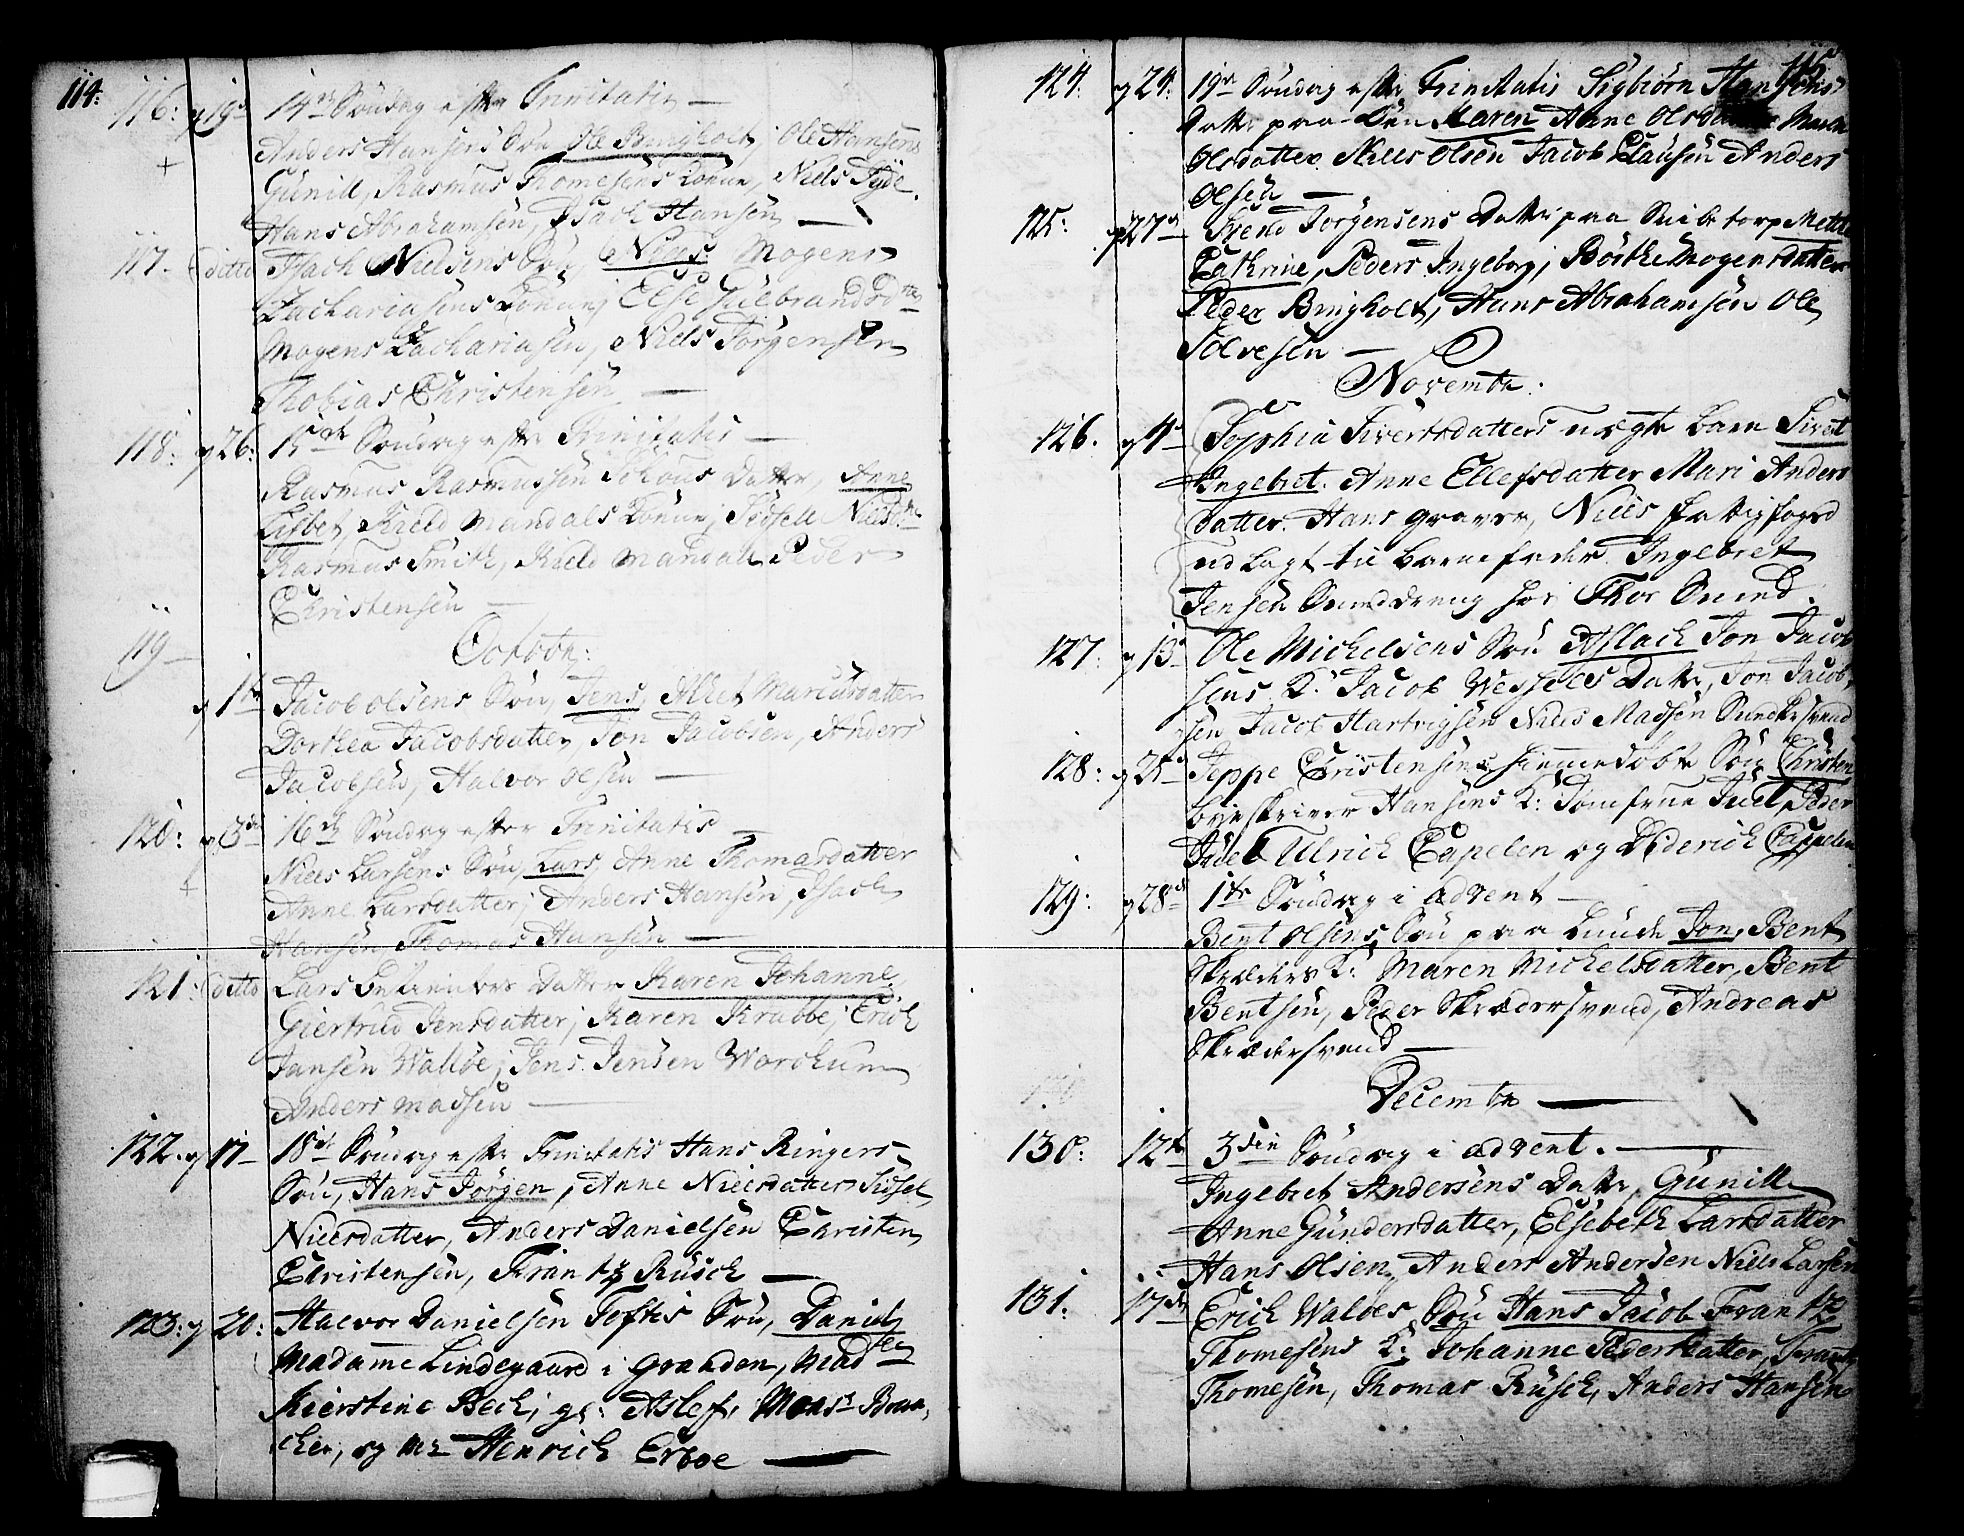 114:
116: 19 14de Søndag efter Trinitatis —
Anders Hansens Søn Ole Bringholt, Ole Hansens
Gunill, Rasmus Thomesens Konne, Niels Tyde
Hans Abrahamsen, Isach Hansen —
117. Editto Isach Nielsens Søn, Niels. Mogens
Zachariasens Konne, Else Gulbrandsd
Mogens Zachariasen, Niels Jørgensen
Thobias Christensen —
118: 26: 15de Søndag efter Trinitatis —
Rasmus Rasmussen Datter, Anne
Lisbet, Kield Mandals Konne, Sidsell Nielsd
Rasmus Smith, Kield Mandal Peder
Christensen —
119 — October:
1te Jacob Olsens Søn, Jens, Allet Mariusdatter
Dorthea Jacobsdatter, Jon Jacobsen, Anders
Jacobsen, Halvor Olsen —
120: 3de 16de Søndag efter Trinitatis —
Niels Larsens Søn, Lars, Anne Thomasdatter
Anne Larsdatter, Anders Hansen, Isach
Hansen Thomas Hansen —
121: Editto Lars Datter Karen Johanne.
Giertrud Jensdatter, Karen Krabbe, Erich
Jansen Walløe, Jens JensenWorchum
Anders Madsen —
122. 17 — 18de Søndag efter Trinitatis Hans Ringers
Søn, Hans Jørgen, Anne Nielsdatter Sidsel
Nielsdatter, Anders Danielsen Christen
Christensen, Frantz Rusch —
123: 20: Halvor Danielsen Toftis Søn, Daniel
Madamme Lindegaard i Granden, Mad
Kierstine Bech, Aslef, Mons Bran,
cher, og Mr Henrich Erboe —
124. 24: 19de Søndag efter Trinitatis Sigbiørn Hansens
Datter paa Maren Anne Olsdatter Maren
Olsdatter. Niels Olsen Jacob Clausen Anders
Olsen —
125: 27de Svend Jørgensens Datter paa Mette
Cathrine, Peders Ingeborg, Børthe Mogensdatter
Peder Bringholt, Hans Abrahamsen Ole
Solvesen —
November:
126. 4de Sophia Sivertsdatters uægte Barn Sivert
Ingebret. Anne Ellefsdatter Mari Anders
datter. Hans Graver, Niels fattigfoged
udlagt til barnefader Ingebret
Jensen hos Thor Smed.
127: 13 Ole Michelsens Søn Aslach Jon Jacob
sens K: Jacob Wessels Datter, Jon Jacob
sen Jacob Hartvigsen Niels Madsen
128: 25 Jeppe Christensens hiemmedøbte Søn Christen
byeskriver Hansens K: Jomfrue Juel, Peder
Juel Ulrich Capelen og Diderich Cappelen
129: 28de 1te Søndag i Advent —
Bent Olsens Søn paa Lunde Jon, Bent
Skræders K: Maren Michelsdatter, Bent
Bentsen, Peder Skrædersvend, Andreas
Skrædersvend —
December —
130: 12te 3die Søndag i Advent. —
Ingebret Andersens Datter, Gunill
Anne Gundersdatter, Elsebeth Larsdatter
Hans Olsen, Anders Andersen Niels Larsen
131. 17de Erich Waløes Søn Hans Jacob Frantz
Thomesens K: Johanne Pedersdatter, Frantz
Thomesen, Thomas Rusch, Anders Hansen